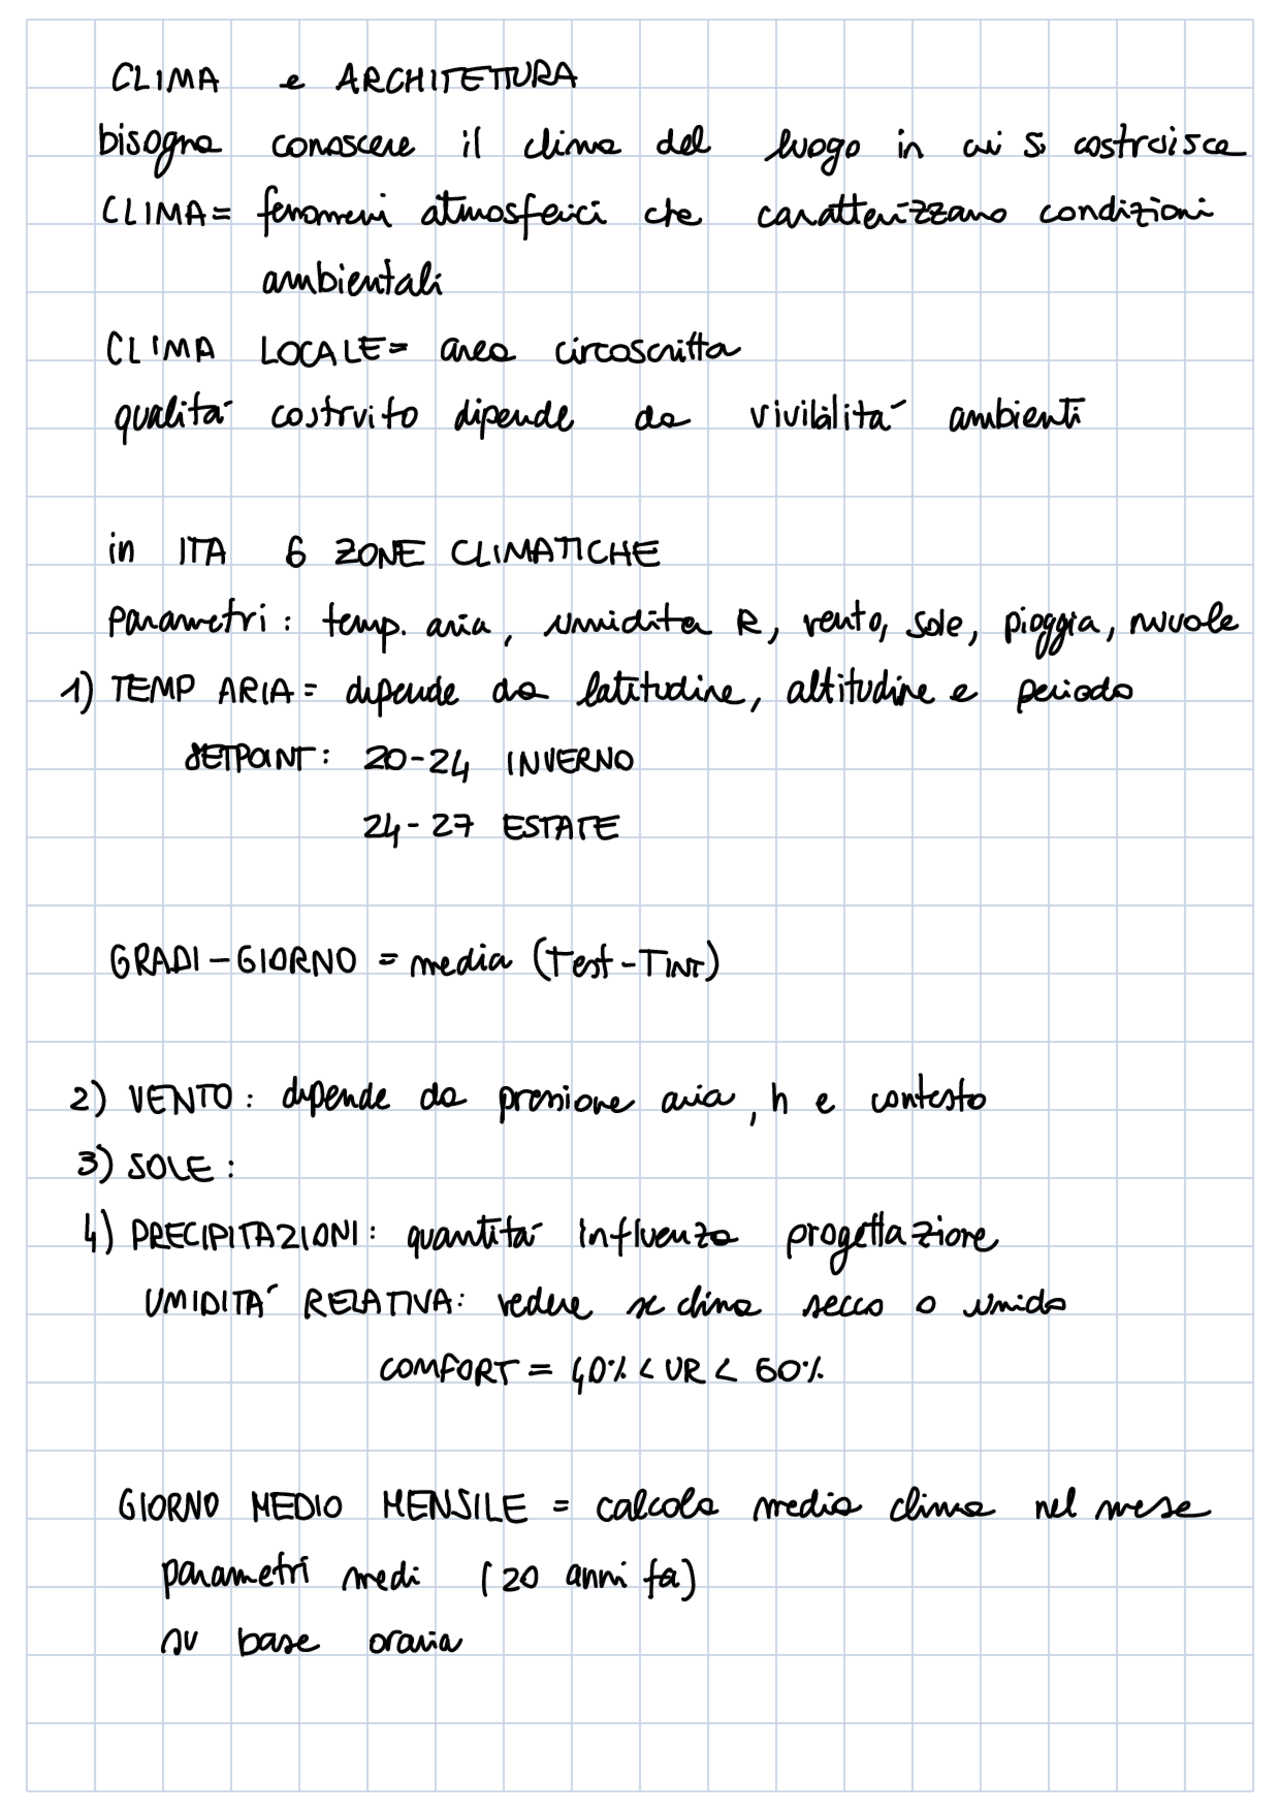 CLIMA e ARCHITETTURA
bisogna conoscere il clima del luogo in cui si costruisce
CLIMA= fenomeni atmosferici che caratterizzano condizioni
ambientali
CLIMA LOCALE= area circoscritta
qualità costruito dipende da vivibilità ambienti
in ITA 6 ZONE CLIMATICHE
parametri: temp. aria, umidita R, vento, sole, pioggia, nuvole
1) TEMP ARIA= dipende da latitudine, altitudine e periodo
SETPOINT: 20-24 INVERNO
24-27 ESTATE
GRADI-GIORNO = media (Test-TINT)
2) VENTO: dipende da pressione aria, h e contesto
3) SOLE:
4) PRECIPITAZIONI: quantità influenza progettazione
UMIDITÀ RELATIVA: vedere se clima secco o umido
COMFORT = 40% < UR < 60%
GIORNO MEDIO MENSILE = calcolo medio clima nel mese
parametri medi (20 anni fa)
su base oraria